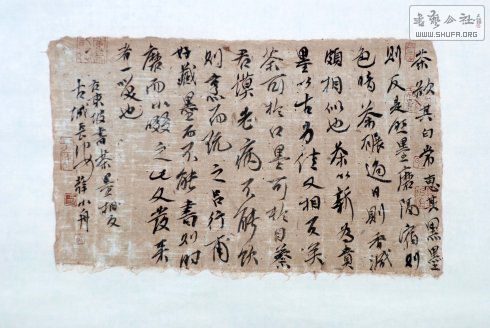 書藝公社
WWW.SHUFA.ORG
茶欲其白常患其黑墨
則反是然墨磨隔宿則
色暗茶碾過日則香減
頗相似也茶以新為貴
墨以古為佳又相反矣
茶可於口墨可於目蔡
君謨老病不能飲
則烹而玩之吕行甫
好藏墨而不能書則時
磨而小啜之此又發来
者一笑也
東坡書茶墨相反
古城長沙